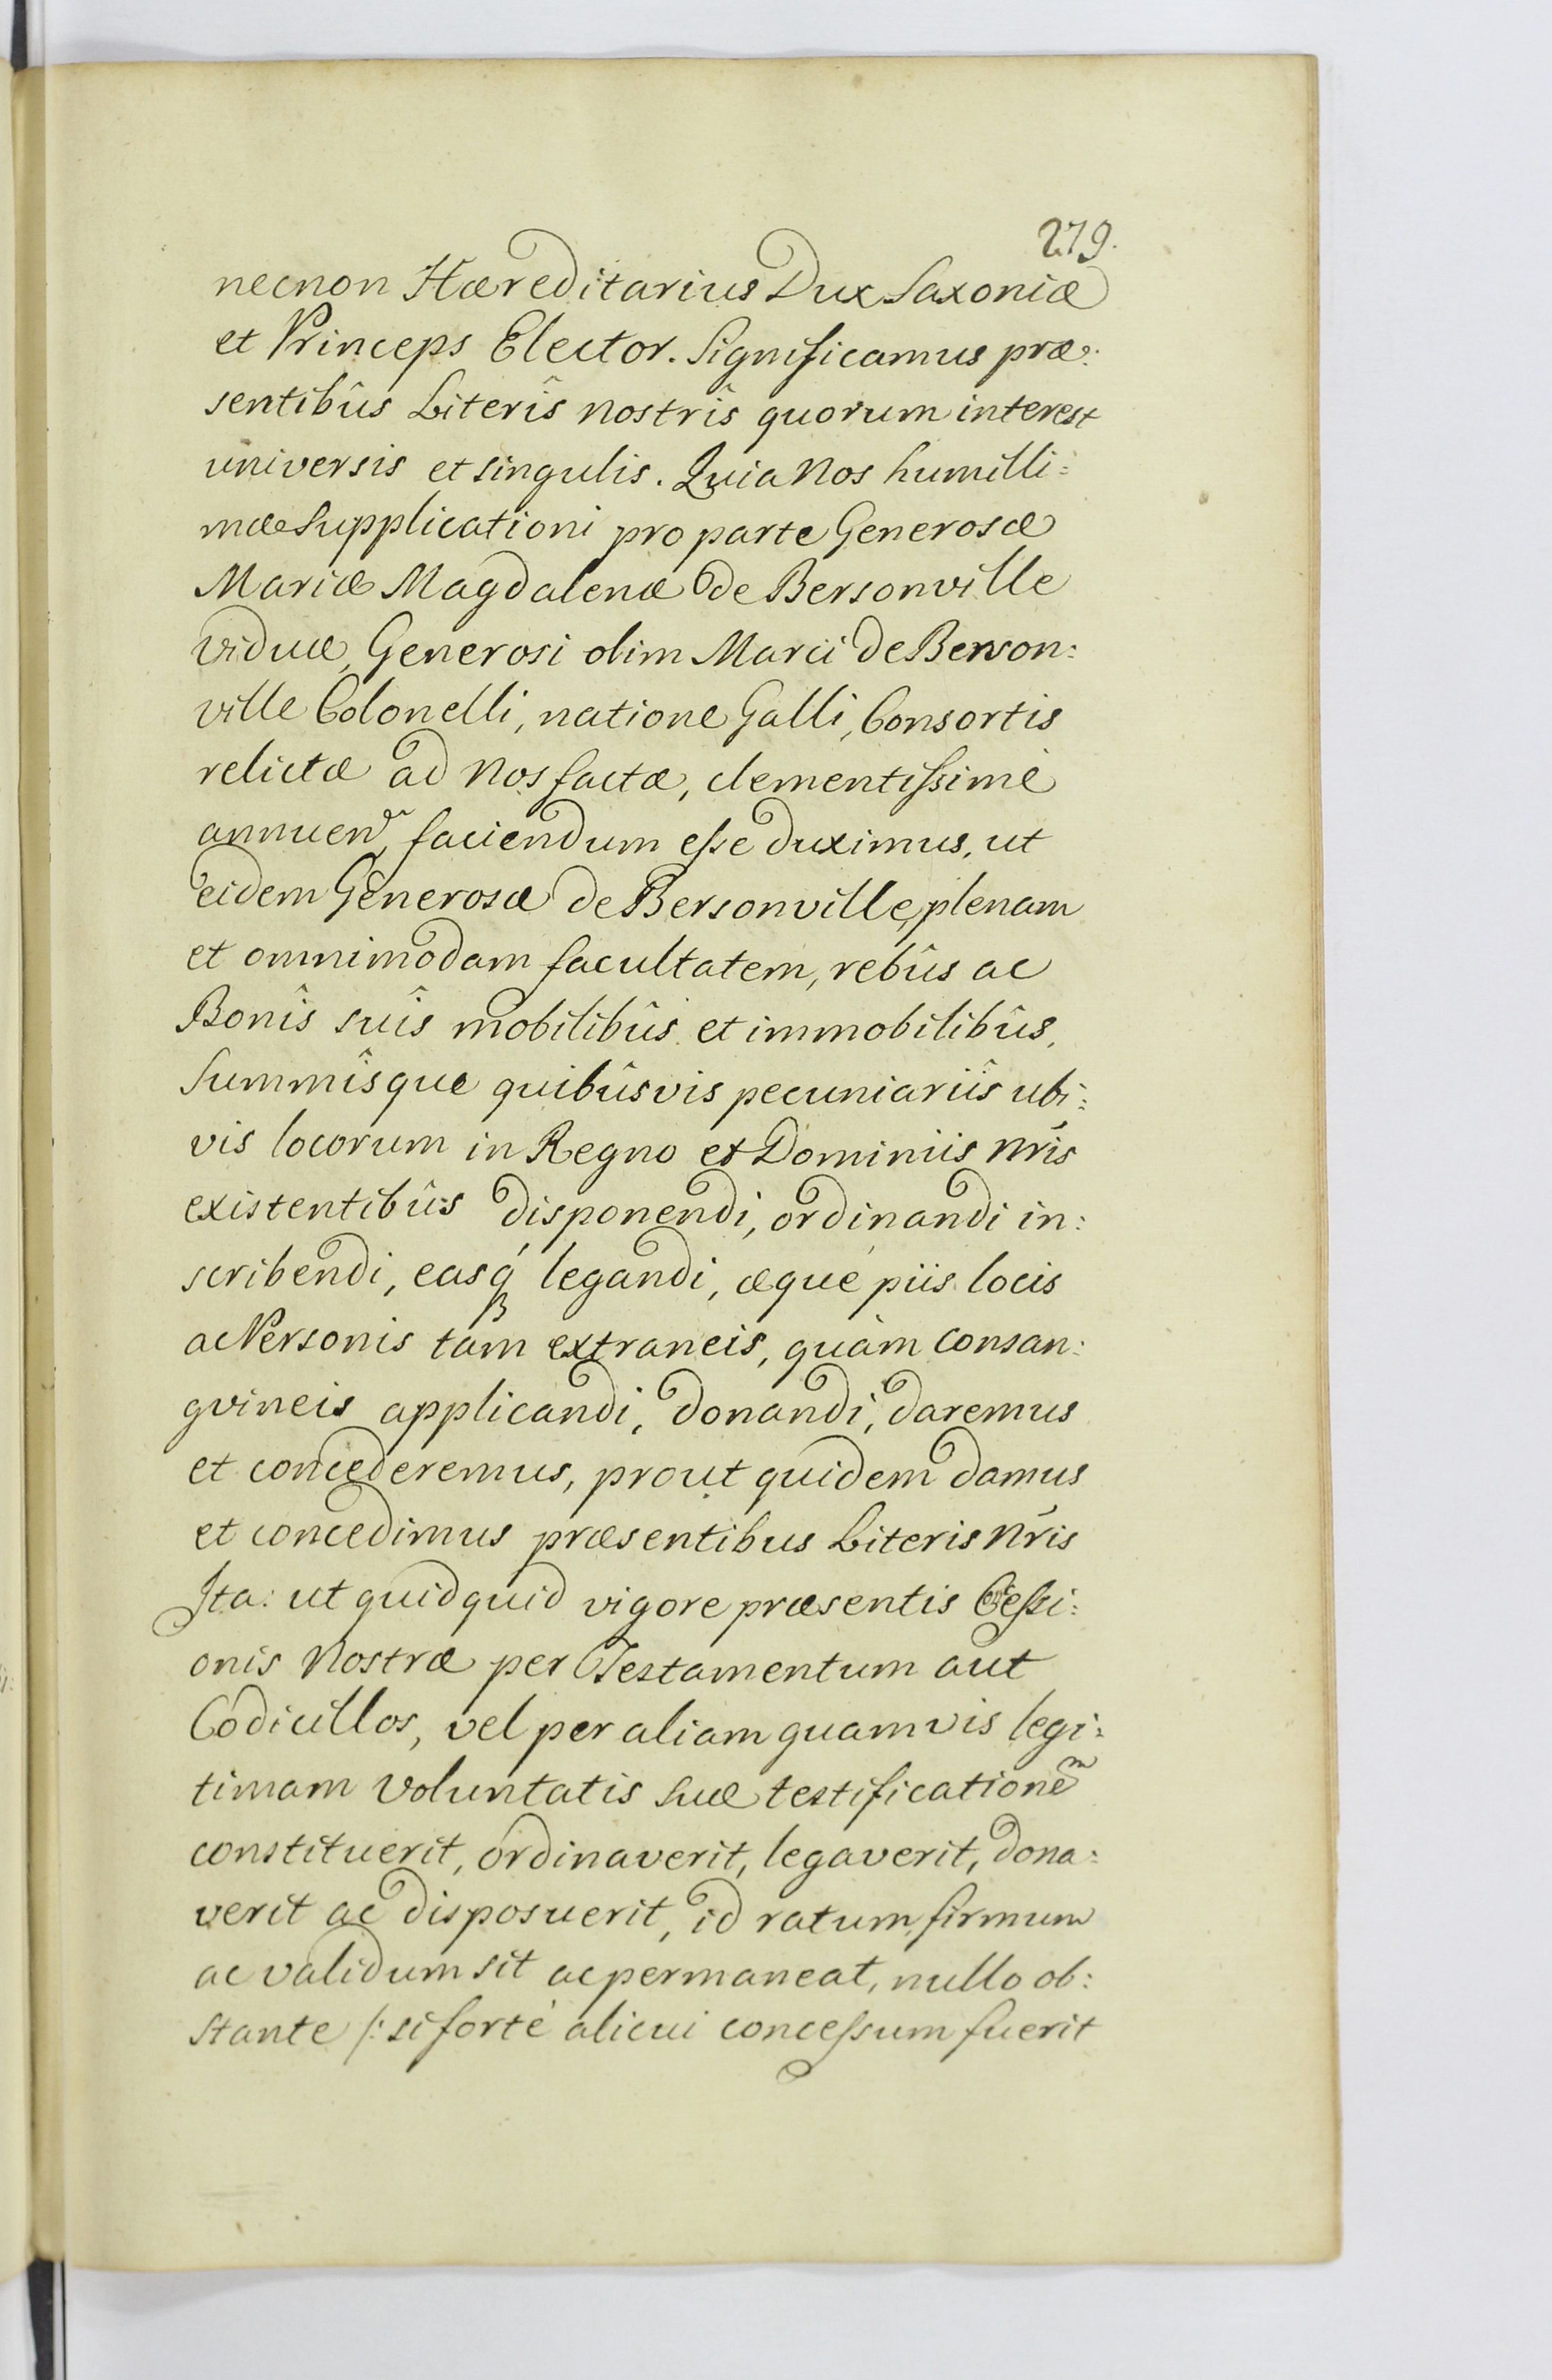 279.
necnon Hæreditarius Dux Saxoniæ
et Princeps Elector. Significamus præ:
sentibûs Literîs nostrîs quorum interest
universis et singulis. Quia Nos humilli:
mæ supplicationi pro parte Generosæ
Mariæ Magdalenæ de Bersonville
viduæ, Generosi olim Marci de Berson:
ville Colonelli, natione Galli, Consortis
relictæ ad Nos factæ, clementißimè
annuen, faciendum eße duximus, ut
eidem Generosæ de Bersonville, plenam
et omnimodam facultatem, rebûs ac
Bonîs suîs mobilibûs et immobilibûs,
Summîsque quibûsvis pecuniariîs ubi:
vis locorum in Regno et Dominiis nrîs
existentibûs disponendi, ordinandi in:
scribendi, easq́ legandi, æque piis locis
ac Personis tàm extraneis, quàm consan:
gvineis applicandi, donandi, daremus
et concederemus, prout quidem damus
et concedimus præsentibus Literis nr̃is
Ita: ut quidquid vigore præsentis Ceßi:
onis Nostræ per Testamentum aut
Codicillos, vel per aliam quamvis legi:
timam Voluntatis suæ testificationeᵐ
constituerit, ordinaverit, legaverit, dona:
verit ac disposuerit, id ratum, firmum
ac validum sit ac permaneat, nullo ob:
stante /: si fortè alicui conceßum fuerit